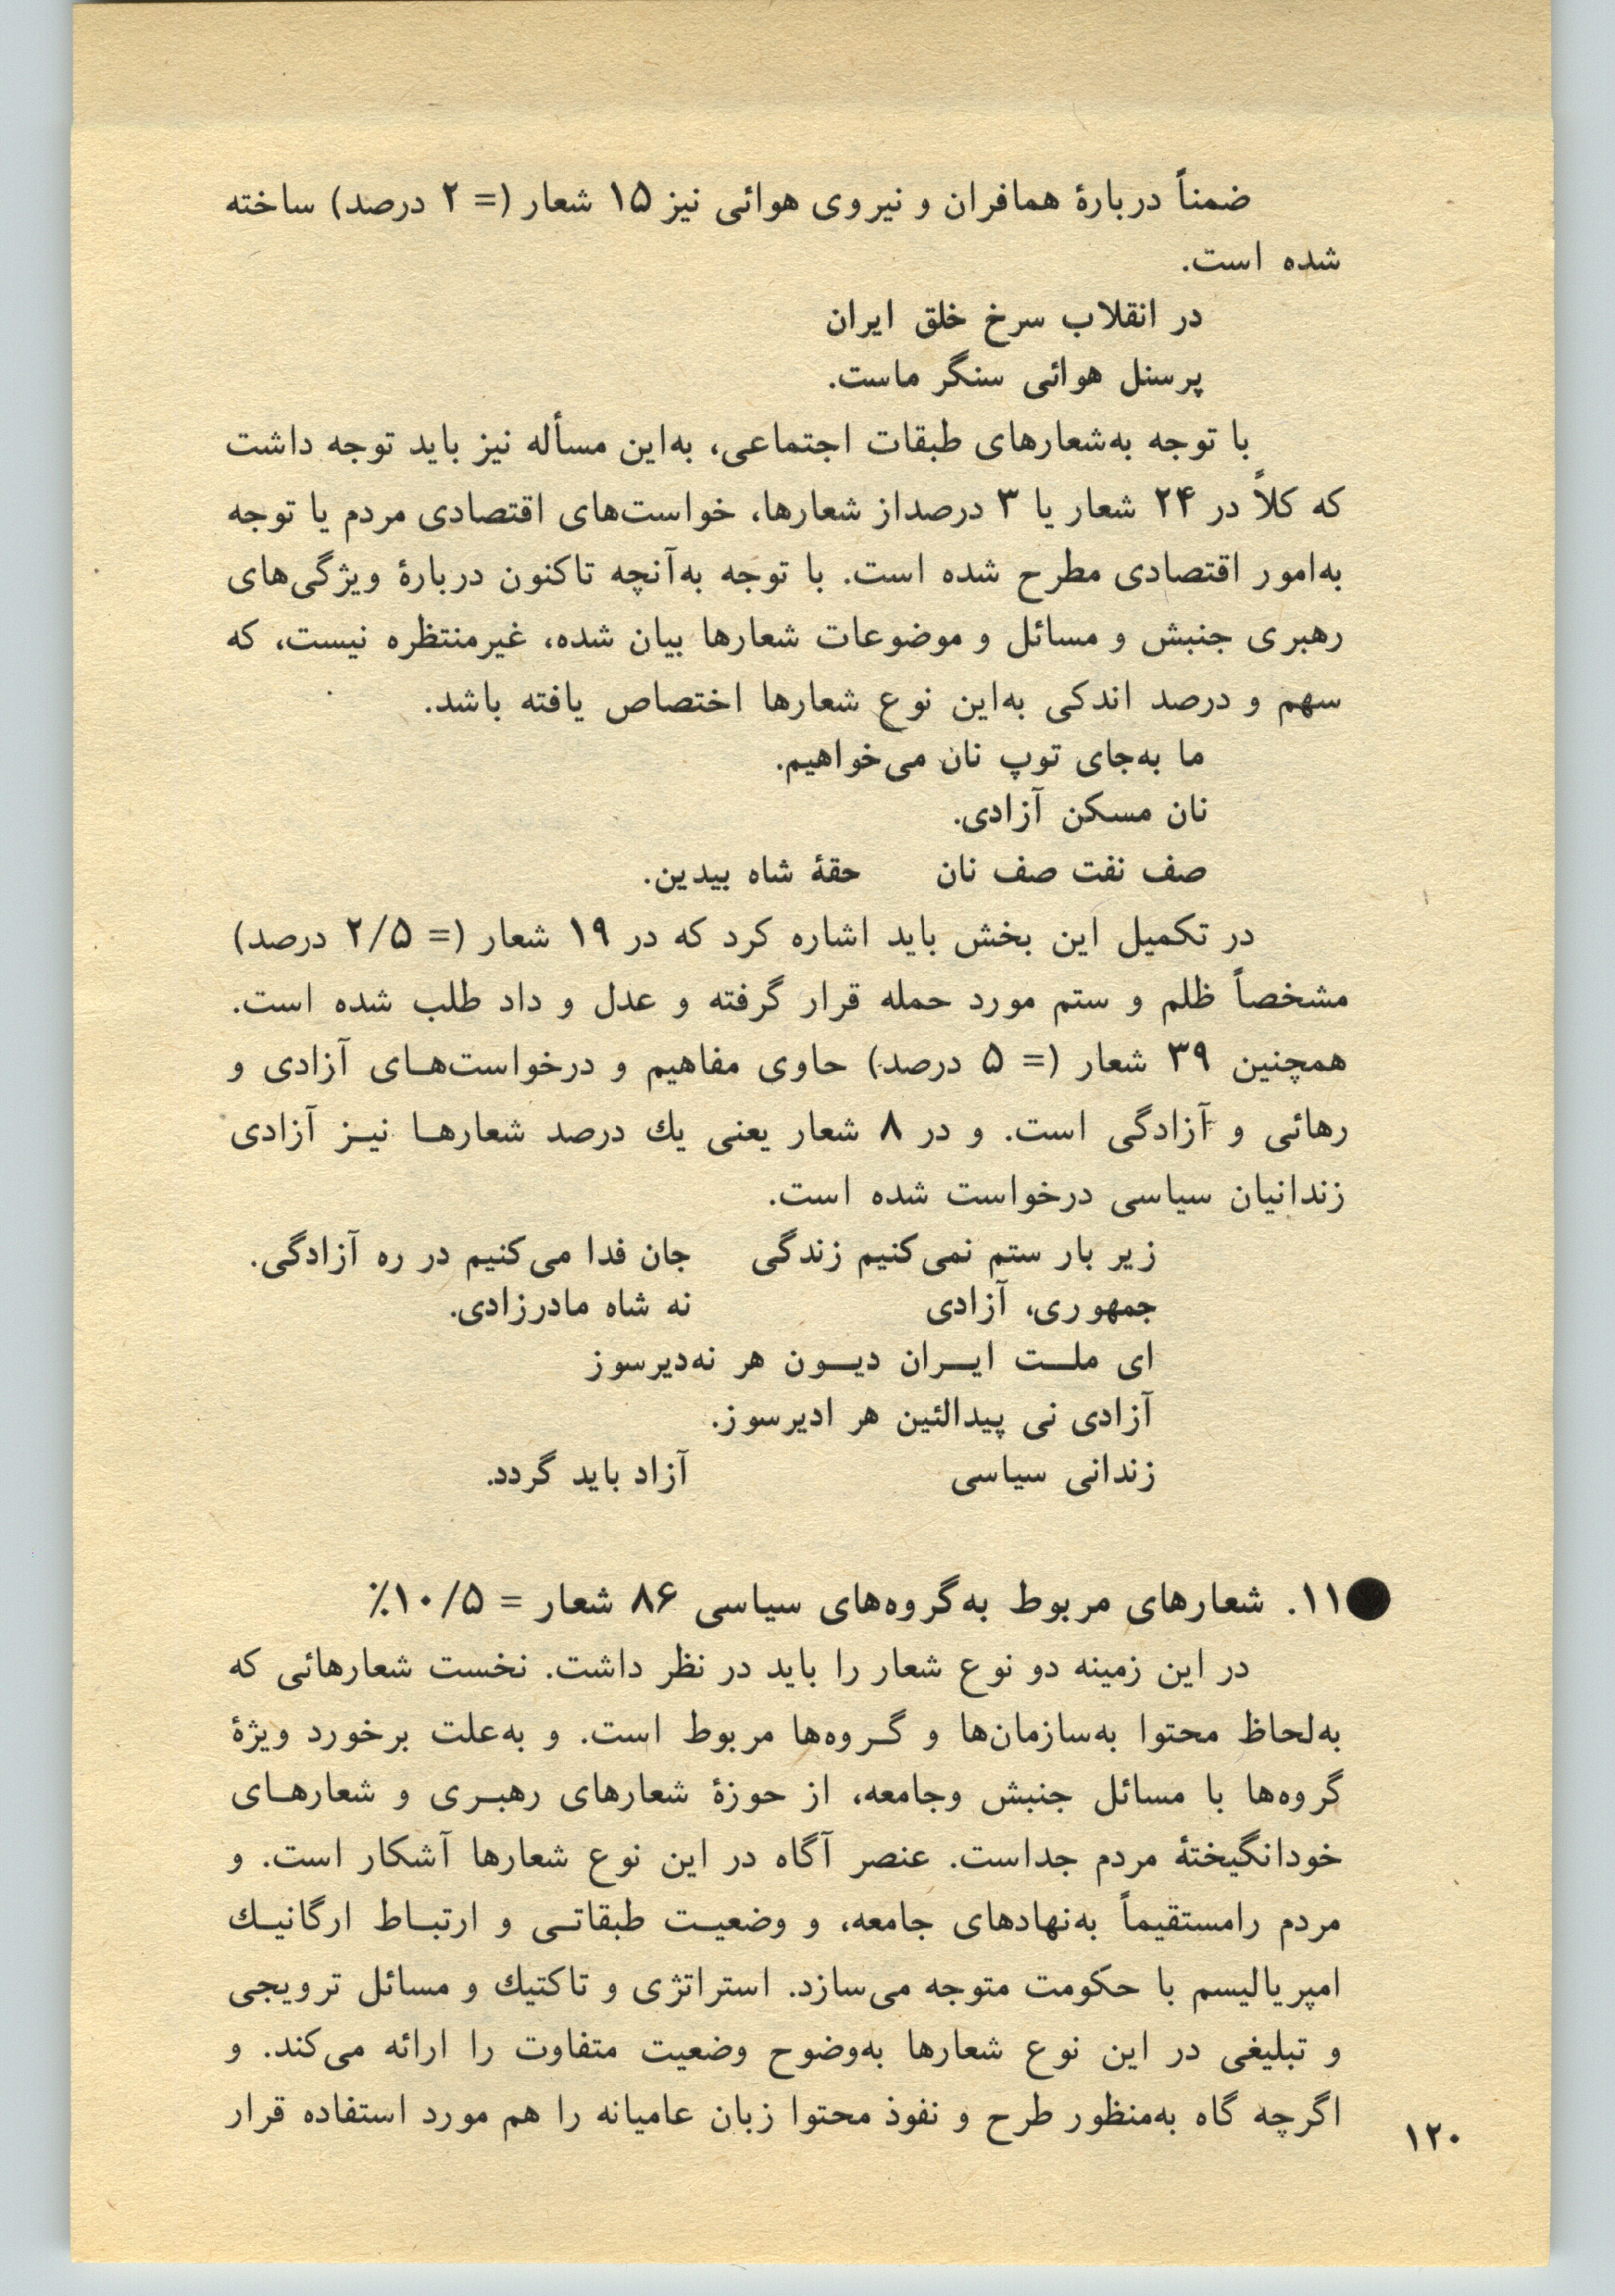 ضمناً دربارهٔ همافران و نیروی هوائی نیز ۱۵ شعار (= ۲ درصد) ساخته
شده است.
در انقلاب سرخ خلق ایران
پرسنل هوائی سنگر ماست.
با توجه به‌شعارهای طبقات اجتماعی، به‌این مسأله نیز باید توجه داشت
که کلاً در ۲۴ شعار یا ۳ درصداز شعارها، خواست‌های اقتصادی مردم یا توجه
به‌امور اقتصادی مطرح شده است. با توجه به‌آنچه تاکنون دربارهٔ ویژگی‌های
رهبری جنبش و مسائل و موضوعات شعارها بیان شده، غیرمنتظره نیست، که
سهم و درصد اندکی به‌این نوع شعارها اختصاص یافته باشد.
ما به‌جای توپ نان می‌خواهیم.
نان مسکن آزادی.
صف نفت صف نان حقهٔ شاه بیدین.
در تکمیل این بخش باید اشاره کرد که در ۱۹ شعار (= ۲/۵ درصد)
مشخصاً ظلم و ستم مورد حمله قرار گرفته و عدل و داد طلب شده است.
همچنین ۳۹ شعار (= ۵ درصد) حاوی مفاهیم و درخواست‌هـای آزادی و
رهائی و آزادگی است. و در ۸ شعار یعنی یك درصد شعارهـا نیـز آزادی
زندانیان سیاسی درخواست شده است.
زیر بار ستم نمی‌کنیم زندگی جان فدا می‌کنیم در ره آزادگی.
جمهوری، آزادی نه شاه مادرزادی.
ای ملـت ایـران دیـون هر نه‌دیرسوز
آزادی نی پیدالئین هر ادیرسوز.
زندانی سیاسی آزاد باید گردد.
●۱۱. شعارهای مربوط به‌گروه‌های سیاسی ۸۶ شعار = ۱۰/۵٪
در این زمینه دو نوع شعار را باید در نظر داشت. نخست شعارهائی که
به‌لحاظ محتوا به‌سازمان‌ها و گـروه‌ها مربوط است. و به‌علت برخورد ویژهٔ
گروه‌ها با مسائل جنبش وجامعه، از حوزهٔ شعارهای رهبـری و شعارهـای
خودانگیختهٔ مردم جداست. عنصر آگاه در این نوع شعارها آشکار است. و
مردم رامستقیماً به‌نهادهای جامعه، و وضعیـت طبقاتـی و ارتبـاط ارگانیـك
امپریالیسم با حکومت متوجه می‌سازد. استراتژی و تاکتیك و مسائل ترویجی
و تبلیغی در این نوع شعارها به‌وضوح وضعیت متفاوت را ارائه می‌کند. و
اگرچه گاه به‌منظور طرح و نفوذ محتوا زبان عامیانه را هم مورد استفاده قرار
۱۲۰